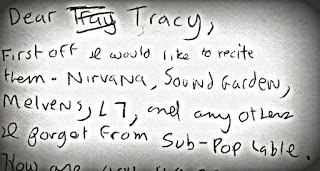 Dear Tray Tracy,
First off I would like to recite
them. Nirvana, Sound Garden,
Melvens, L7, and any others
I forget from Sub-Pop lable.
How are you